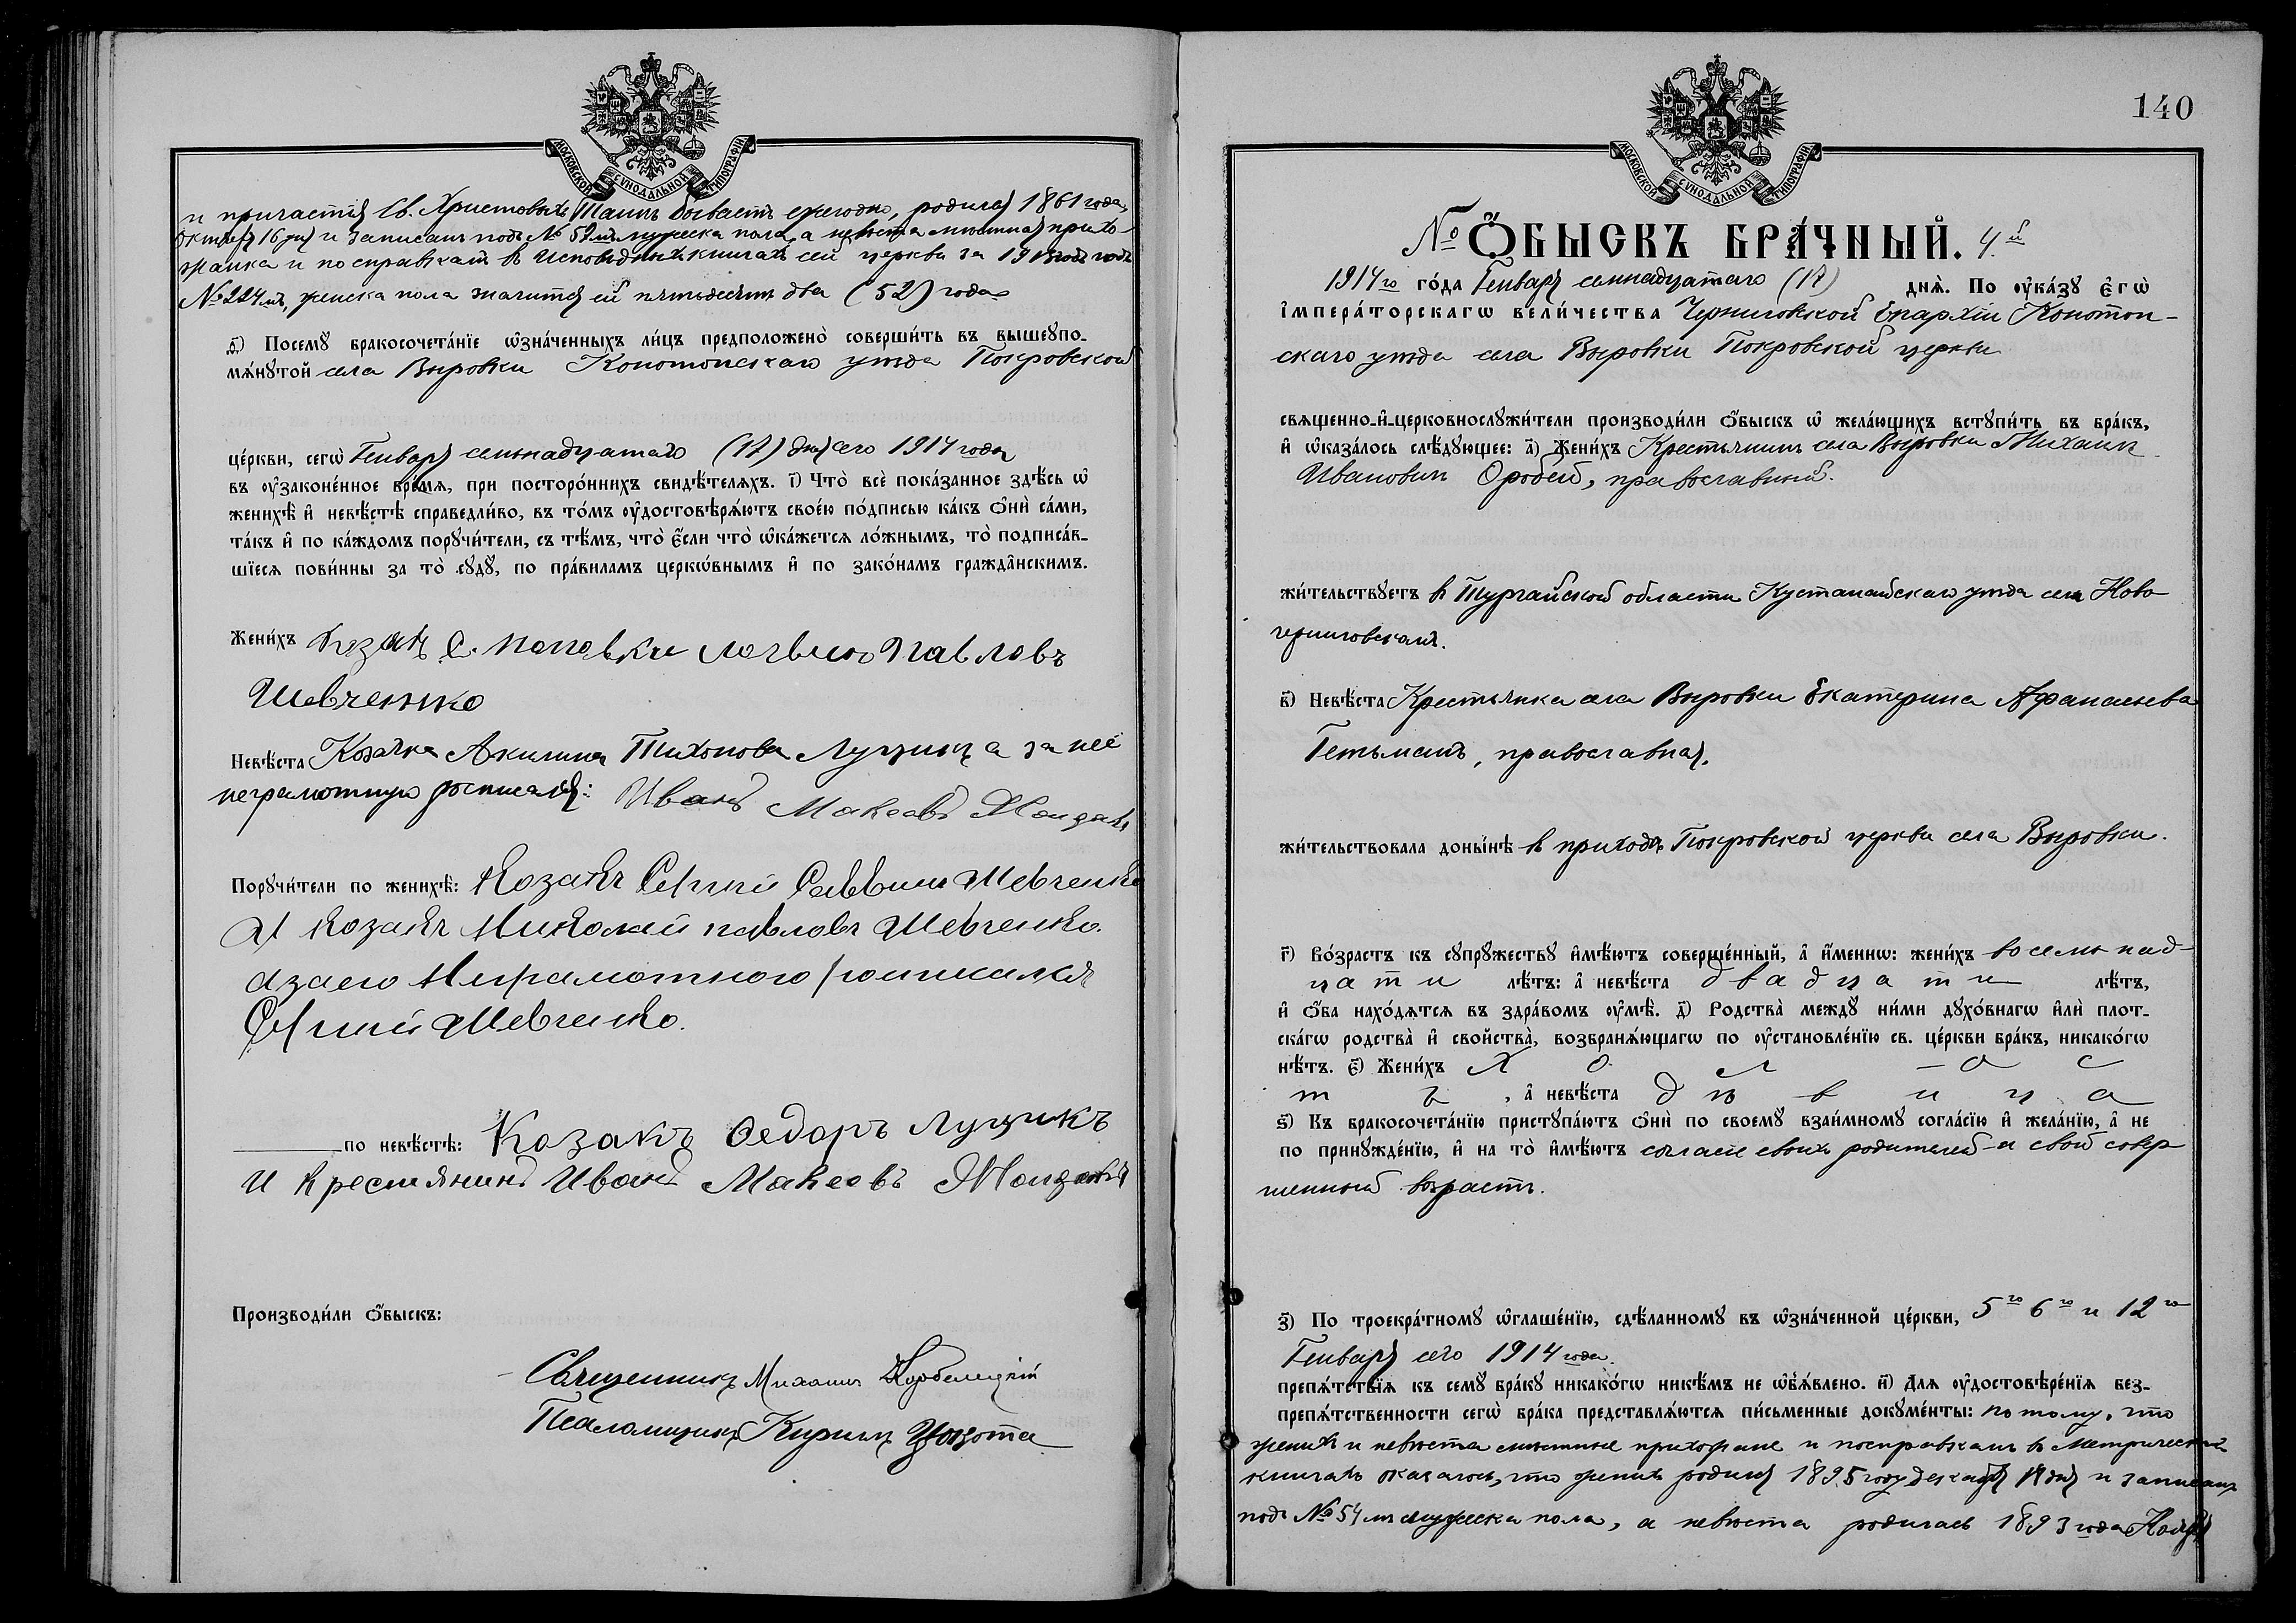 МОСКОВСКОЙ СѴНОДАЛЬНОЙ ТИПОГРАФІИ
и причастія Св. Христовыхъ Таинъ бываетъ ежегодно, родился 1861 года,
Октября 16 дня и записанъ подъ № 52мъ мужеска пола, а невѣста мѣстная прихо-
жанка и по справкамъ въ Исповѣдныхъ книгахъ сей церкви за 1913 годъ подъ
№ 224мъ, женска пола значится ей пятьдесятъ два (52) года
ѳ҃) Посемꙋ бракосочета́нїе ѡ҆зна́ченныхъ ли́цъ предположено̀ соверши́ть въ вышеꙋпо-
мѧ́нꙋтой села Выровки Конотопскаго уѣзда Покровской
це́ркви, сегѡ̀ Генваря семнадцатаго (17) дня сего 1914 года
въ ᲂу҆законе́нное вре́мѧ, при посторо́ннихъ свидѣ́телѧхъ. і҃) Что̀ всѐ пока́занное здѣ́сь ѡ҆
женихѣ̀ и҆ невѣ́стѣ справедли́во, въ то́мъ ᲂу҆достовѣрѧ́ютъ свое́ю по́дписью ка́къ ѻ҆нѝ са́ми,
та́къ и҆ по ка́ждомъ порꙋчи́тели, съ тѣ́мъ, что̀ є҆́сли что̀ ѡ҆ка́жетсѧ ло́жнымъ, то̀ подписа́в-
шїесѧ пови́нны за то̀ сꙋдꙋ̀, по пра́виламъ церко́внымъ и҆ по зако́намъ гражда́нскимъ.
Жени́хъ Казакъ с. Поповки Логвинъ Павловъ
Шевченко
Невѣ́ста Козачка Акилина Тихонова Лущикъ а за нее
неграмотную росписался: Иванъ Макеевъ
Порꙋчи́тели по женихѣ̀: Козакъ Сергѣй Саввинъ Шевченко
И козакъ Николай павловъ Шевченко.
а за его Неграмотного росписился
Сергѣй Шевченко.
по невѣ́стѣ: Козакъ Ѳедоръ Лущикъ
И крестянинъ Иванъ Макеевъ
Производи́ли ѻ҆́быскъ:
Священникъ Михаилъ Корбелецкій
Псаломщикъ Кирилъ
140
МОСКОВСКОЙ СѴНОДАЛЬНОЙ ТИПОГРАФІИ
№ Ѻ҆́БЫСКЪ БРА́ЧНЫЙ. 4.й
1914го го́да Генваря семнадцатаго (17) днѧ̀. По ᲂу҆ка́зꙋ є҆гѡ̀
і҆мпера́торскагѡ вели́чества Черниговской Епархіи Конотоп-
скаго уѣзда села Выровки Покровской церкви
свѧщенно-и҆-церковнослꙋжи́тели производи́ли ѻ҆́быскъ ѡ҆ жела́ющихъ встꙋпи́ть въ бра́къ,
и҆ ѡ҆каза́лось слѣ́дꙋющее: а҃) Жени́хъ Крестьянинъ села Выровки Михаилъ
Ивановъ Оробей, православный.
жи́тельствꙋетъ въ Тургайской области Кустанайскаго уѣзда селѣ Ново
черниговскомъ.
в҃) Невѣ́ста Крестьянка села Выровки Екатерина Афанасьева
Гетьманъ, православная,
жи́тельствовала доны́нѣ въ приходѣ Покровской церкви села Выровки.
г҃) Во́зрастъ къ сꙋпрꙋ́жествꙋ и҆мѣ́ютъ соверше́нный, а҆ и҆́менно: жени́хъ восемьнад-
цати лѣ́тъ: а҆ невѣ́ста двадцати лѣ́тъ,
и҆ ѻ҆́ба нахо́дѧтсѧ въ здра́вомъ ᲂу҆мѣ̀. д҃) Родства̀ междꙋ̀ ни́ми дꙋхо́внагѡ и҆лѝ плот-
ска́гѡ родства̀ и҆ сво́йства̀, возбранѧ́ющагѡ по ᲂу҆становле́нїю св. це́ркви бра́къ, никако́гѡ
нѣ́тъ. є҃) Жени́хъ хол-ос
тъ, а҆ невѣ́ста дѣвица
ѕ҃) Къ бракосочета́нїю пристꙋпа́ютъ ѻ҆нѝ по своемꙋ̀ взаи́мномꙋ согла́сїю и҆ жела́нїю, а҆ не
по принꙋжде́нїю, и҆ на то̀ и҆мѣ́ютъ согласіе своихъ родителей и свой совер
шенный возрастъ.
з҃) По троекра́тномꙋ ѡ҆глаше́нїю, сдѣ́ланномꙋ въ ѡ҆зна́ченной це́ркви, 5го 6го и 12го
Генваря сего 1914 года.
препѧ́тствїѧ къ семꙋ̀ бра́кꙋ никако́гѡ никѣ́мъ не ѡ҆б̾ѧ́влено. и҃) Длѧ ᲂу҆достовѣре́нїѧ без-
препѧ́тственности сегѡ̀ бра́ка представлѧ́ютсѧ пи́сьменные докꙋме́нты: потому, что
женихъ и невѣста мѣстные прихожане и по справкамъ въ Метрическихъ
книгахъ оказалось, что женихъ родился 1895 году декабря 17 дня и записанъ
подъ № 54мъ мужеска пола, а невѣста родилась 1893 года Ноября